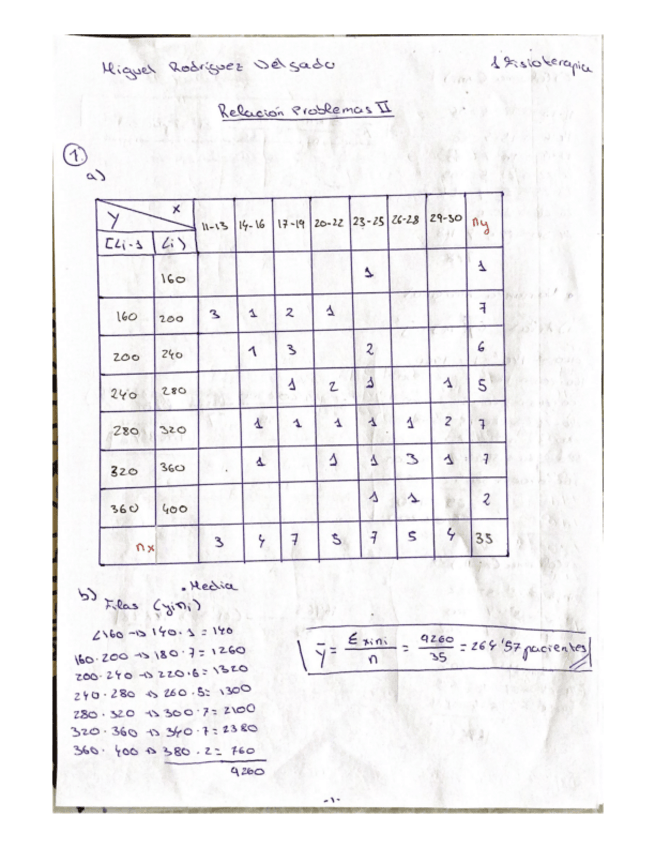 Miguel Rodríguez Delgado 1 Fisioterapia
Relación Problemas II
1.
a)
Y X 11-13 14-16 17-19 20-22 23-25 26-28 29-30 ny
[Li-1 Li)
160 1 1
160 200 3 1 2 1 7
200 240 1 3 2 6
240 280 1 2 1 1 5
280 320 1 1 1 1 1 2 7
320 360 1 1 1 3 1 7
360 400 1 1 2
nx 3 4 7 5 7 5 4 35
b) • Media
Filas (yini)
<160 → 140·1 = 140
160·200 → 180·7 = 1260
200·240 → 220·6 = 1320
240·280 → 260·5 = 1300
280·320 → 300·7 = 2100
320·360 → 340·7 = 2380
360·400 → 380·2 = 760
9260
ȳ = Σxini / n = 9260 / 35 = 264'57 pacientes
-1-